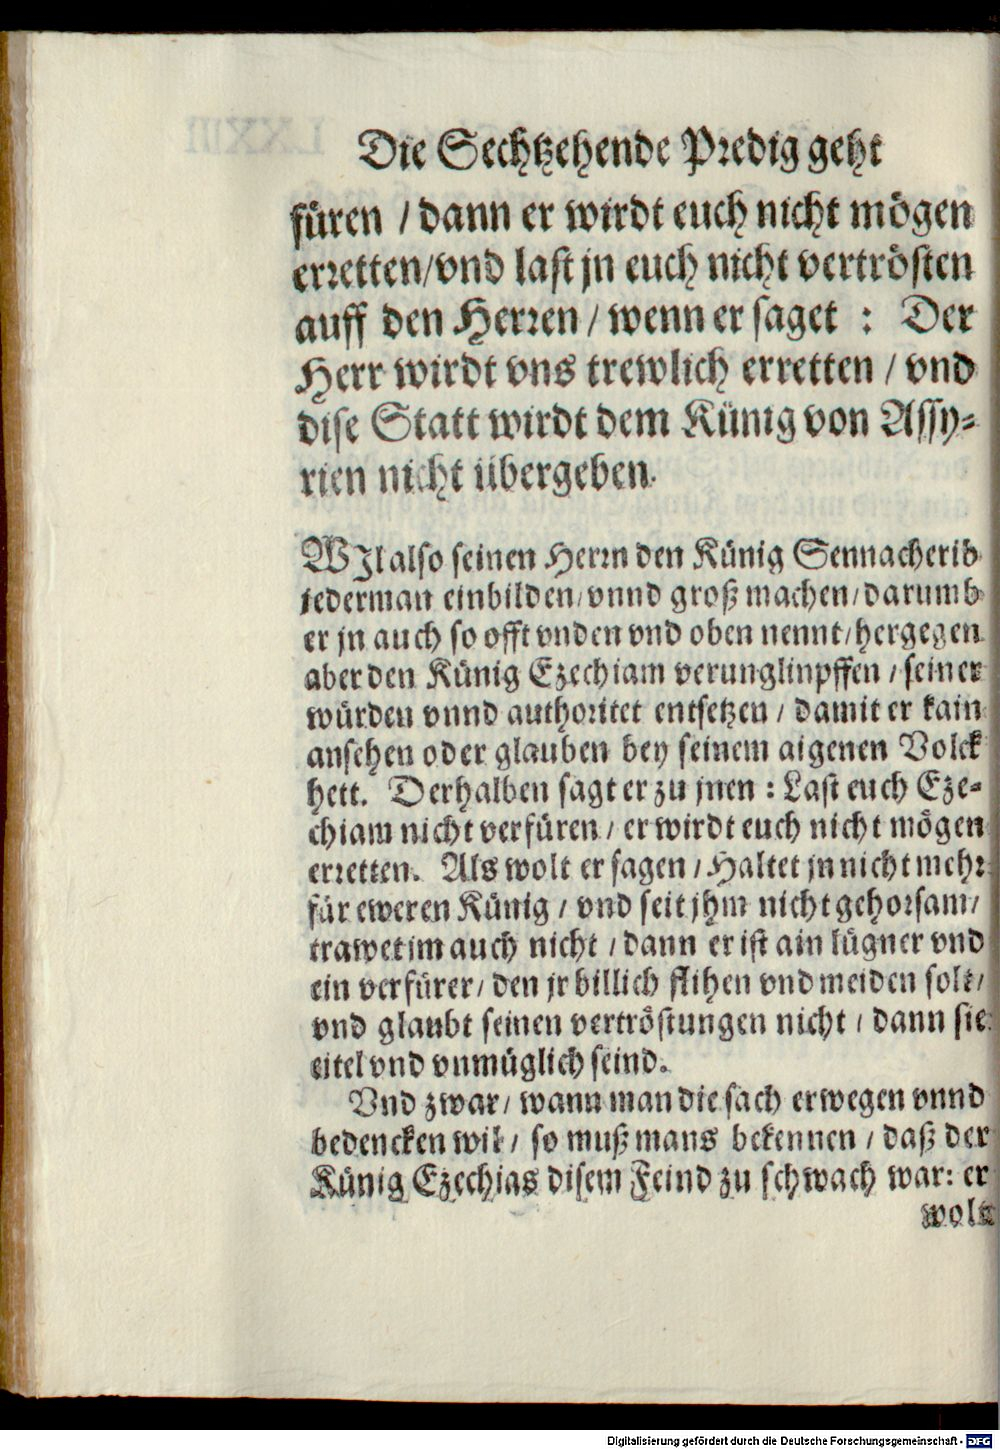 Die Sechtzehende Predig geht
füren / dann er wirdt euch nicht mögen
erretten/vnd last jn euch nicht vertrösten
auff den Herren / wenn er saget : Der
Herr wirdt vns trewlich erretten / vnd
dise Statt wirdt dem Künig von Assy-
rien nicht übergeben.
WIl also seinen Herrn den Künig Sennacherib
jederman einbilden/vnnd groß machen/darumb
er jn auch so offt vnden vnd oben nennt/hergegen
aber den Künig Ezechiam verunglinpffen / seiner
würden vnnd authoritet entsetzen / damit er kain
ansehen oder glauben bey seinem aigenen Volck
hett. Derhalben sagt er zu jnen : Last euch Eze-
chiam nicht verfüren / er wirdt euch nicht mögen
erretten. Als wolt er sagen / Haltet jn nicht mehr
für eweren Künig / vnd seit jhm nicht gehorsam/
trawet im auch nicht / dann er ist ain lügner vnd
ein verfürer/ den jr billich flihen vnd meiden solt/
vnd glaubt seinen vertröstungen nicht / dann sie
eitel vnd vnmüglich seind.
Vnd zwar/ wann man die sach erwegen vnnd
bedencken wil/ so muß mans bekennen / daß der
Künig Ezechias disem Feind zu schwach war: er
wolt
Digitalisierung gefördert durch die Deutsche Forschungsgemeinschaft - DFG